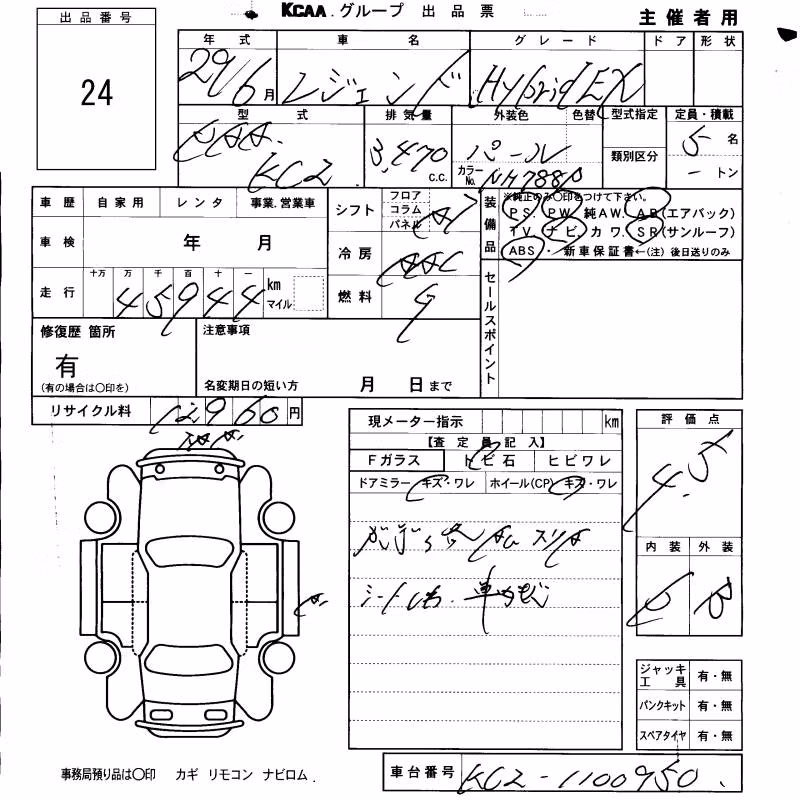 KCAA グループ 出品票
主催者用
出品番号
24
年式 車名 グレード ドア 形状
29/6月 レジェンド Hybrid EX
型式 排気量 外装色 色替 型式指定 定員・積載
KC2 3,470 c.c. パール カラーNo. NH788P 類別区分 5名
ートン
車歴 自家用 レンタ 事業.営業車
シフト フロア コラム パネル AT
装備品
※純正のみ〇印をつけて下さい。
PS. PW. 純AW. AB(エアバック)
TV. ナビ. カワ. SR(サンルーフ)
ABS・新車保証書←(注)後日送りのみ
車検 年 月
冷房 AAC
走行 十万 万 千 百 十 一
45944 km マイル
燃料 G
セールスポイント
修復歴 箇所
有
(有の場合は〇印を)
注意事項
名変期日の短い方 月 日まで
リサイクル料 12960円
現メーター指示 km
【査定員記入】
Fガラス トビ石 ヒビワレ
ドアミラー キズ・ワレ ホイール(CP) キズ・ワレ
評価点
4.5
内装 外装
B
ジャッキ工具 有・無
パンクキット 有・無
スペアタイヤ 有・無
事務局預り品は〇印 カギ リモコン ナビロム.
車台番号 KC2-1100950